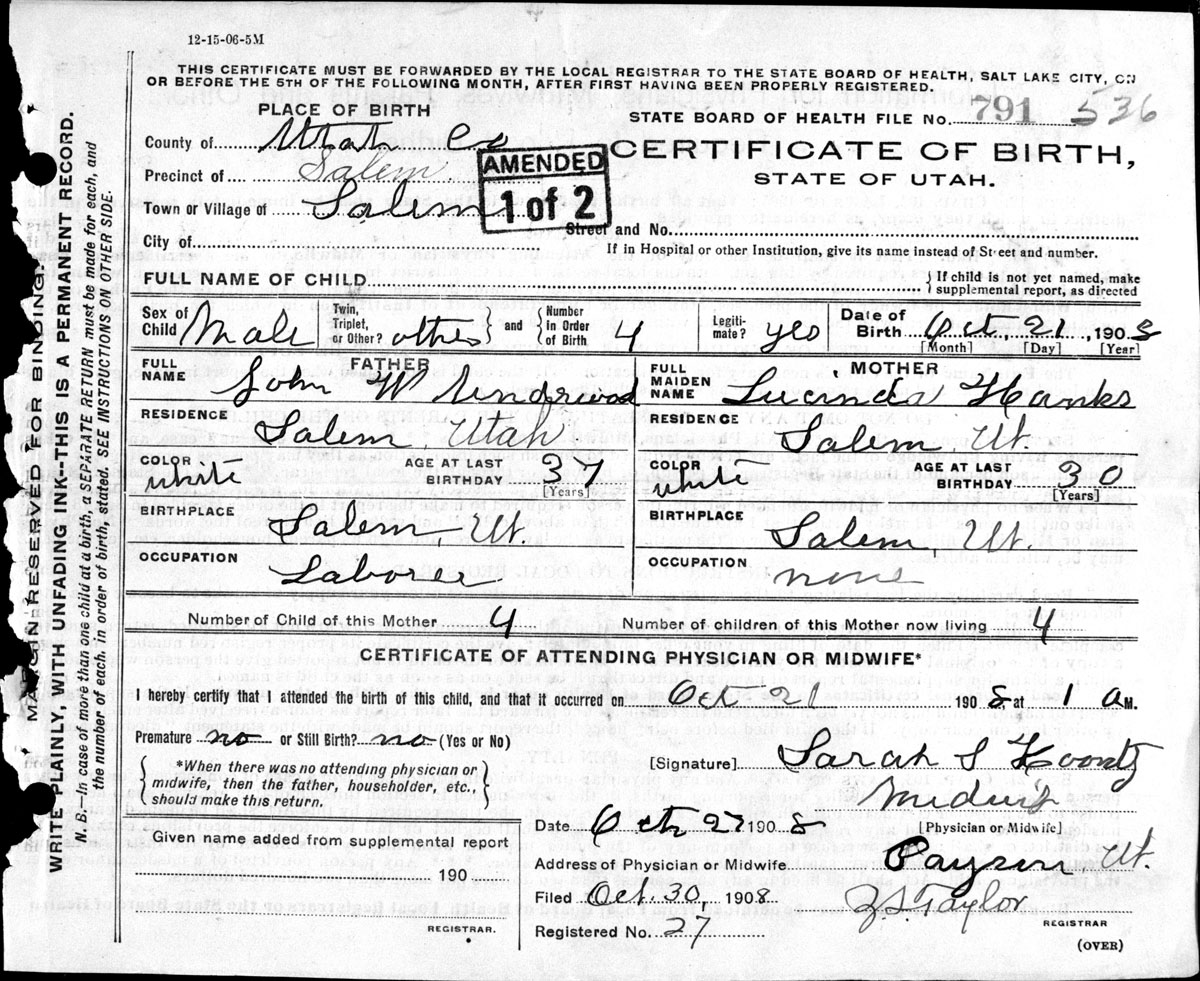 12-15-06-5M
THIS CERTIFICATE MUST BE FORWARDED BY THE LOCAL REGISTRAR TO THE STATE BOARD OF HEALTH, SALT LAKE CITY, ON
OR BEFORE THE 5TH OF THE FOLLOWING MONTH, AFTER FIRST HAVING BEEN PROPERLY REGISTERED.
PLACE OF BIRTH
STATE BOARD OF HEALTH FILE No. 791 536
County of Utah Co
CERTIFICATE OF BIRTH,
STATE OF UTAH.
Precinct of Salem
AMENDED
1 of 2
Town or Village of Salem
Street and No.
City of
If in Hospital or other Institution, give its name instead of Street and number.
FULL NAME OF CHILD
{ If child is not yet named, make
supplemental report, as directed
Sex of Child Male
Twin, Triplet, or Other? other } and { Number in Order of Birth 4
Legiti-mate? yes
Date of Birth Oct. 21, 1908
[Month] [Day] [Year]
FATHER
FULL NAME John W Underwood
MOTHER
FULL MAIDEN NAME Lucinda Hanks
RESIDENCE Salem, Utah
RESIDENCE Salem Ut.
COLOR white AGE AT LAST BIRTHDAY 37 [Years]
COLOR white AGE AT LAST BIRTHDAY 30 [Years]
BIRTHPLACE Salem, Ut.
BIRTHPLACE Salem, Ut.
OCCUPATION Laborer
OCCUPATION none
Number of Child of this Mother 4
Number of children of this Mother now living 4
CERTIFICATE OF ATTENDING PHYSICIAN OR MIDWIFE*
I hereby certify that I attended the birth of this child, and that it occurred on Oct 21 1908 at 1 a M.
Premature no or Still Birth? no (Yes or No)
{ *When there was no attending physician or
midwife, then the father, householder, etc.,
should make this return. }
[Signature] Sarah S
Midwife
[Physician or Midwife]
Date Oct 27 1908
Given name added from supplemental report
190
REGISTRAR.
Address of Physician or Midwife Payson, Ut.
Filed Oct. 30, 1908
Taylor
REGISTRAR
Registered No. 27
(OVER)
MARGIN RESERVED FOR BINDING.
WRITE PLAINLY, WITH UNFADING INK--THIS IS A PERMANENT RECORD.
N. B.—In case of more than one child at a birth, a SEPARATE RETURN must be made for each, and
the number of each, in order of birth, stated. SEE INSTRUCTIONS ON OTHER SIDE.